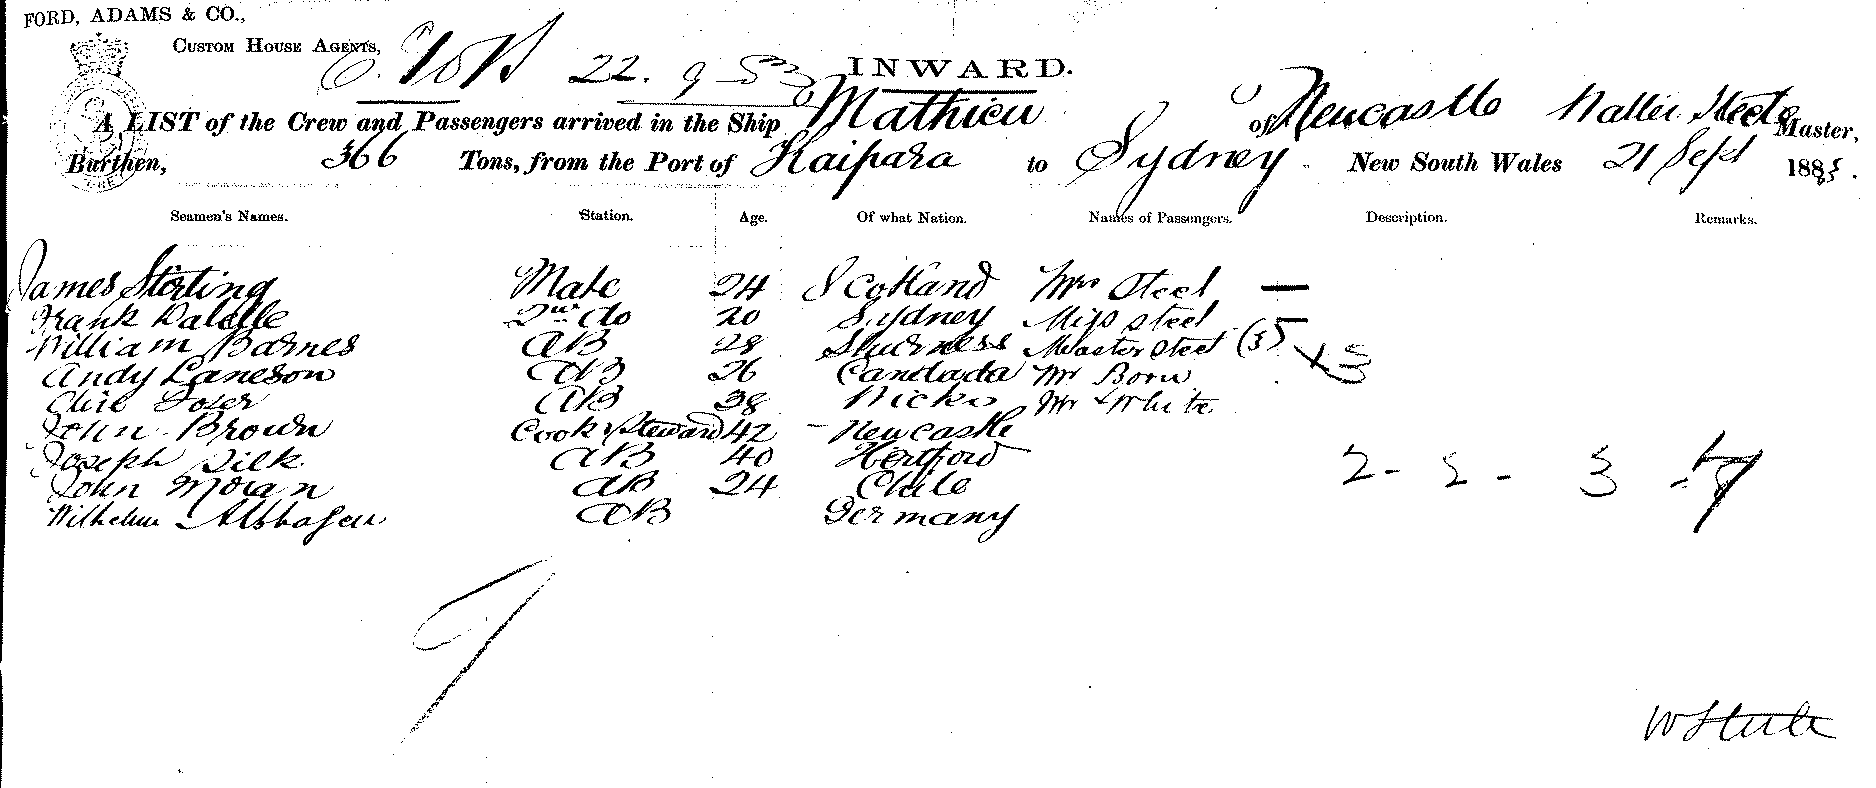 FORD, ADAMS & CO.,
CUSTOM HOUSE AGENTS,
22. 9 83
INWARD.
A LIST of the Crew and Passengers arrived in the Ship Mathieu of Newcastle Master,
Burthen, 366 Tons, from the Port of Kaipara to Sydney New South Wales 21 Sept 1883.
Seamen's Names. Station. Age. Of what Nation. Names of Passengers. Description. Remarks.
James Stirling Mate 24 Scotland Mrs Steel —
Frank 2nd do 20 Sydney Miss Steel —
William Barnes AB 28 Master Steel (3)
Andy Laneson AB 26 Candada Mr Born
AB 38 Mr White
John Brown Cook & Steward 42 Newcastle
Joseph Silk AB 40 Hertford 2 - 2 - 3
John Moran AB 24 Chile
Wilhelm AB Germany
9
W Steele